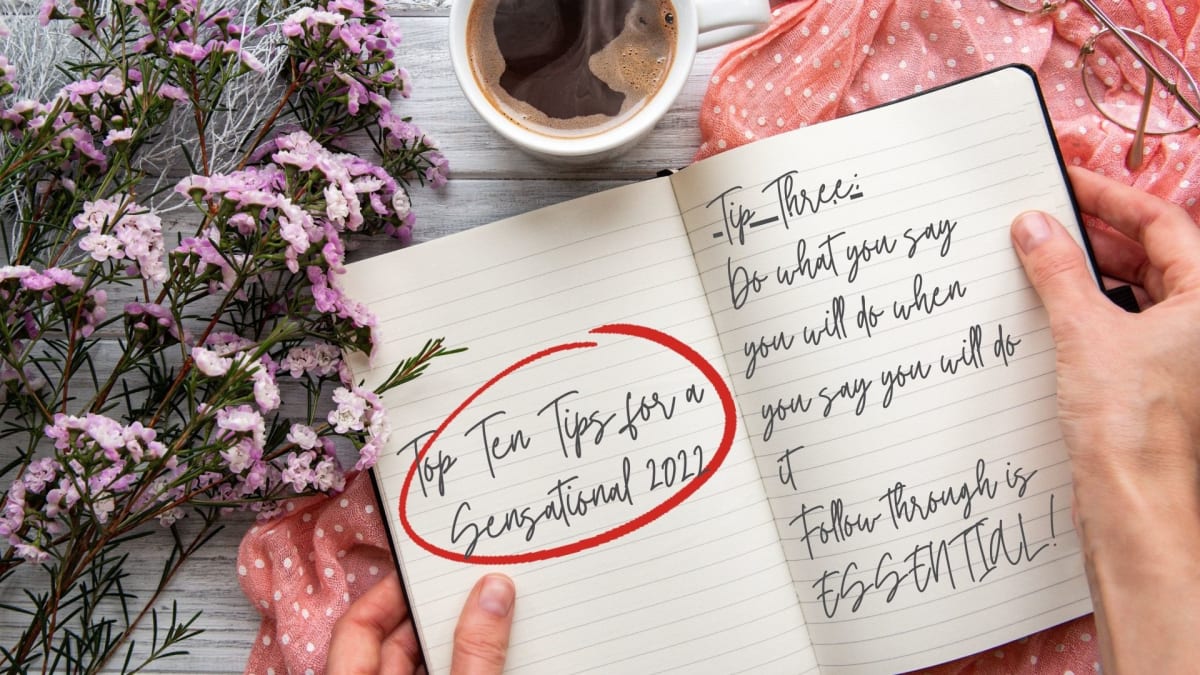 Top Ten Tips for a
Sensational 2022
Tip Three:
Do what you say
you will do when
you say you will do
it
Follow through is
ESSENTIAL!